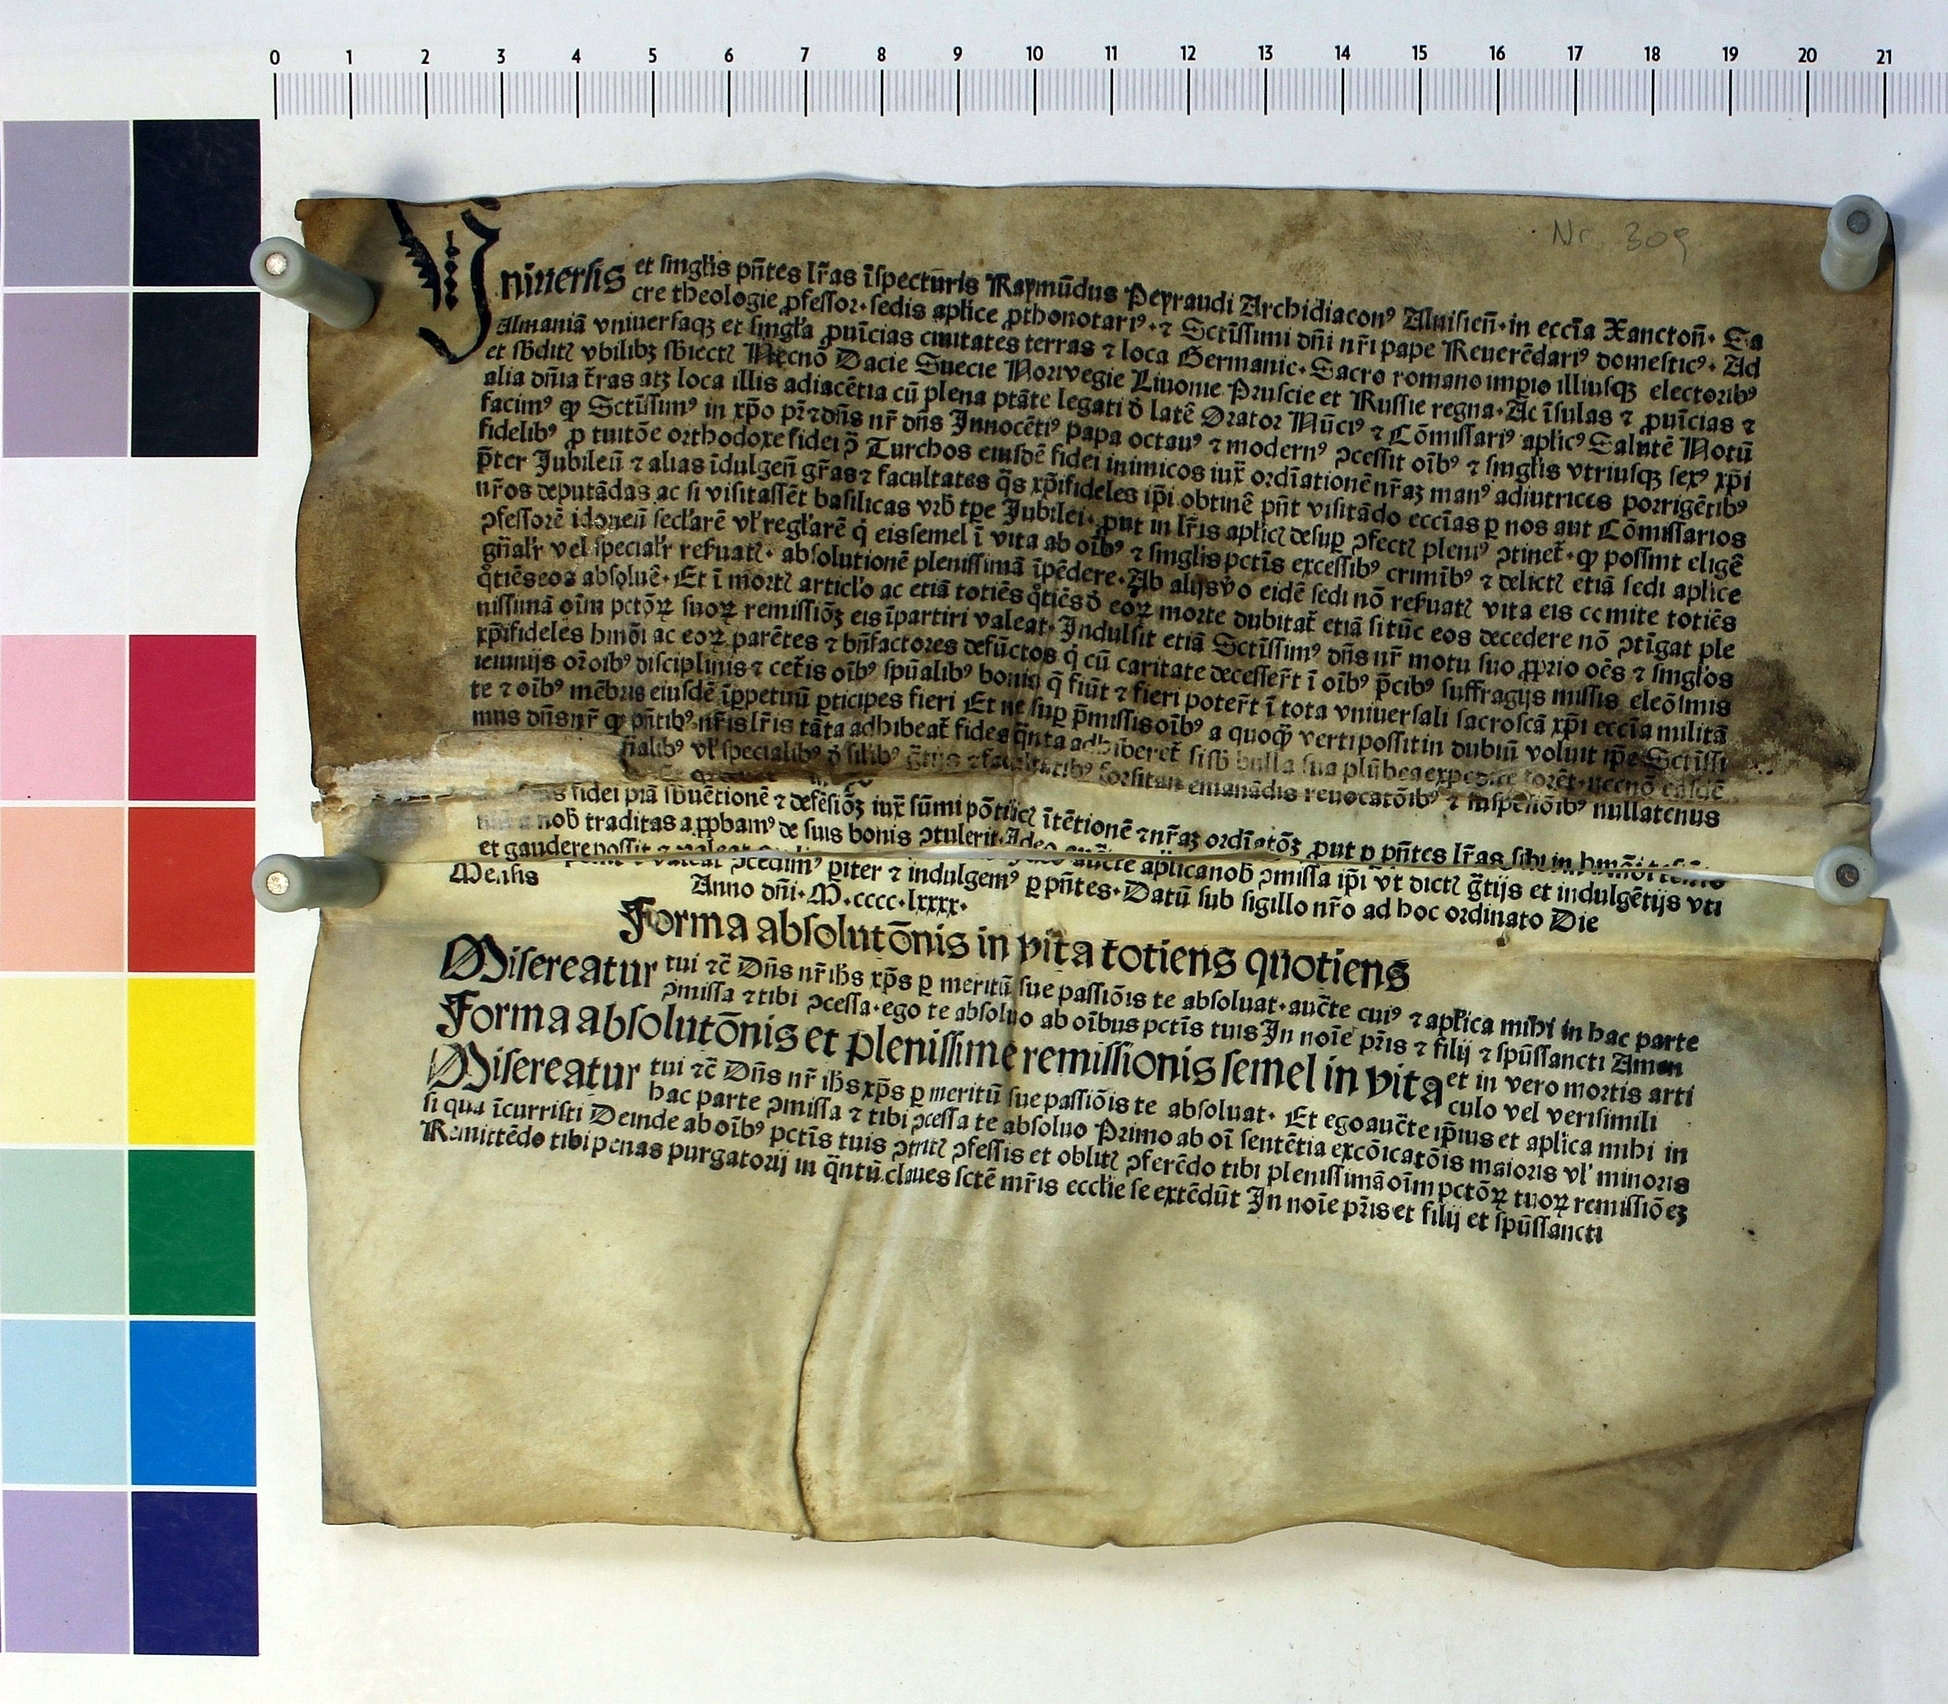 0 1 2 3 4 5 6 7 8 9 10 11 12 13 14 15 16 17 18 19 20 21
Nr. 309
Vniuersis et singl'is pñtes lr̃as ĩspecturis Raymũdus Peyraudi Archidiaconꝰ Alnisieñ·in eccĩa Xanctoñ· Sa
cre theologie ꝓfessor·sedis apl'ice ꝓthonotariꝰ·⁊ Sctĩssimi dñi nr̃i pape Reuerẽdariꝰ domesticꝰ· Ad
Almaniã vniuersaqꝫ et singl'a ꝓuĩcias ciuitates terras ⁊ loca Germanic·Sacro romano imꝑio illiusqꝫ electoribꝰ
et sb̃ditꝭ vbilibꝫ sb̃iectꝭ Necnõ Dacie Suecie Noruegie Liuonie Pruscie et Russie regna·Ac ĩsulas ⁊ ꝓuĩcias ⁊
alia dñia t̃ras atꝫ loca illis adiacẽtia cũ plena ptãte legati d̓ latẽ Orator Nũciꝰ ⁊ Cõmissariꝰ apl'icꝰ Salutẽ Notũ
facimꝰ ꝙ Sctĩssimꝰ in xp̃o pr̃⁊dñs nr̃ dñs Innocẽtiꝰ papa octauꝰ ⁊ modernꝰ ꝯcessit oĩbꝰ ⁊ singl'is vtriusqꝫ sexꝰ xp̃i
fidelibꝰ ꝓ tuitõe orthodoxe fidei ꝯ̃ Turchos eiusdẽ fidei inimicos iux̃ ordĩationẽ nr̃aꝫ manꝰ adiutrices porrigẽtibꝰ
p̃ter Jubileũ ⁊ alias ĩdulgeñ gr̃as⁊ facultates q̃s xp̃ifideles ip̃i obtinẽ pñt visitãdo eccĩas ꝑ nos aut Cõmissarios
nr̃os deputãdas ac si visitassẽt basilicas vrb̃ tꝑe Jubilei· ꝓut in lr̃is apl'icꝭ desuꝑ ꝯfectꝭ pleniꝰ ꝯtinet̃·ꝙ possint eligẽ
ꝯfessorẽ idoneũ secl'arẽ vl' regl'arẽ q̓ eis semel ĩ vita ab oĩbꝰ ⁊ singl'is pctĩs excessibꝰ crimĩbꝰ ⁊ delictꝭ etiã sedi apl'ice
gñal'r vel special'r reẜuatꝭ· absolutionẽ plenissimã ĩpẽdere·Ab alijsvo eidẽ sedi nõ reẜuatꝭ vita eis comite totiẽs
q̓tiẽseos absoluẽ·Et ĩ mortꝭ articl'o ac etiã totiẽs q̓tiẽs d̓ eoꝝ morte dubitat̃ etiã si tũc eos decedere nõ ꝯtĩgat ple
nissimã oĩm pctõꝝ suoꝝ remissiõꝫ eis ĩpartiri valeat·Indulsit etiã Sctĩssimꝰ dñs nr̃ motu suo ꝓprio oẽs ⁊ singl'os
xp̃ifideles hmõi ac eoꝝ parẽtes ⁊ bñfactores defũctos q̓ cũ caritate decesser̃t ĩ oĩbꝰ p̃cibꝰ suffragijs missis eleõsinis
ieiunijs or̃oibꝰ disciplinis⁊ cet̃is oĩbꝰ spũalibꝰ bonis q̃ fiũt ⁊ fieri poter̃t ĩ tota vniuersali sacroscã xp̃i eccĩa militã
te ⁊ oĩbꝰ mẽbris eiusdẽ ĩꝑpetuũ ꝑticipes fieri Et ne suꝑ p̃missis oĩbꝰ a quoqꝫ verti possit in dubiũ voluit ip̃e Sctĩssi
mus dñs nr̃ ꝙ pñtibꝰ nr̃is lr̃is tãta adhibeat̃ fides q̃nta adhiberet̃ si sb̃ bulla sua plũbea expedite forẽt·necnõ easdẽ
ñalibꝰ vl' specialibꝰ d̓ sil'ibꝰ gr̃ijs ⁊facultatibꝰ forsitan emanãdis reuocatõibꝰ ⁊ suspẽsiõibꝰ nullatenus
fidei piã sb̃uẽtionẽ ⁊ defẽsiõꝫ iux̃ sũmi põtificꝭ ĩtẽtionẽ ⁊nr̃aꝫ ordĩatõꝫ ꝓut ꝑ pñtes lr̃as sibi in hmõi
a nob̃ traditas a ꝓpbamꝰ de suis bonis ꝯtulerit·Adeo auc̃te aplicanob̃ ꝯmissa ip̃i vt dictꝭ gr̃tijs et indulgẽtijs vti
et gaudere possit ⁊ valeat ꝯcedimꝰ ꝑiter ⁊ indulgemꝰ ꝑ pñtes·Datũ sub sigillo nr̃o ad hoc ordinato Die
Mensis Anno dñi·M·cccc·lxxxx·
Forma absolutõnis in vita totiens quotiens
Misereatur tui ⁊c̃ Dñs nr̃ ih̃s xp̃s ꝑ meritũ sue passiõis te absoluat·auc̃te cuiꝰ ⁊ apl'ica mihi in hac parte
ꝯmissa ⁊ tibi ꝯcessa·ego te absoluo ab oĩbus pctĩs tuis In noĩe pr̃is ⁊ filij ⁊ spũssancti Amen
Forma absolutõnis et plenissime remissionis semel in vita et in vero mortis arti
culo vel verisimili
Misereatur tui ⁊c̃ Dñs nr̃ ih̃s xp̃s ꝑ meritũ sue passiõis te absoluat· Et ego auc̃te ip̃ius et apl'ica mihi in
hac parte ꝯmissa ⁊ tibi ꝯcessa te absoluo Primo ab oĩ sentẽtia excõicatõis maioris vl' minoris
si quã ĩcurristi Deinde ab oĩbꝰ pctĩs tuis ꝯtritꝭ ꝯfessis et oblitꝭ ꝯferẽdo tibi plenissimã oĩm pctõꝝ tuoꝝ remissiõeꝫ
Remittẽdo tibi penas purgatorij in q̃ntũ claues sctẽ mr̃is eccl'ie se extẽdũt In noĩe pr̃is et filij et spũssancti